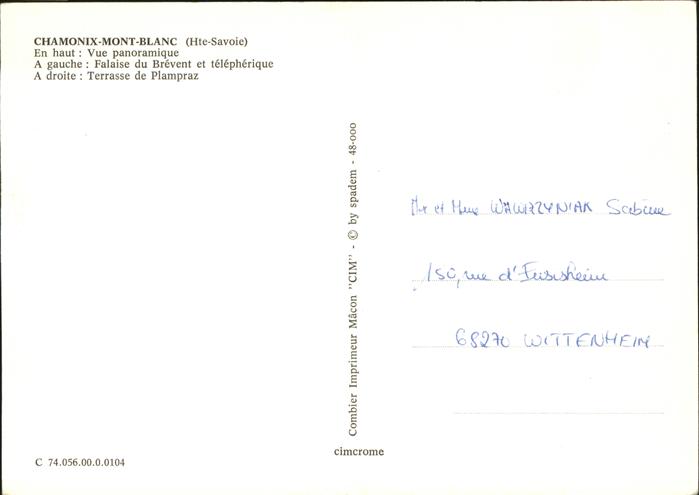 CHAMONIX-MONT-BLANC (Hte-Savoie)
En haut : Vue panoramique
A gauche : Falaise du Brévent et téléphérique
A droite : Terrasse de Plampraz
Combier Imprimeur Mâcon "CIM" - © by spadem - 48-000
Mr et Mme WAWRZYNIAK Sabine
150, rue d'Ensisheim
68270 WITTENHEIM
cimcrome
C 74.056.00.0.0104